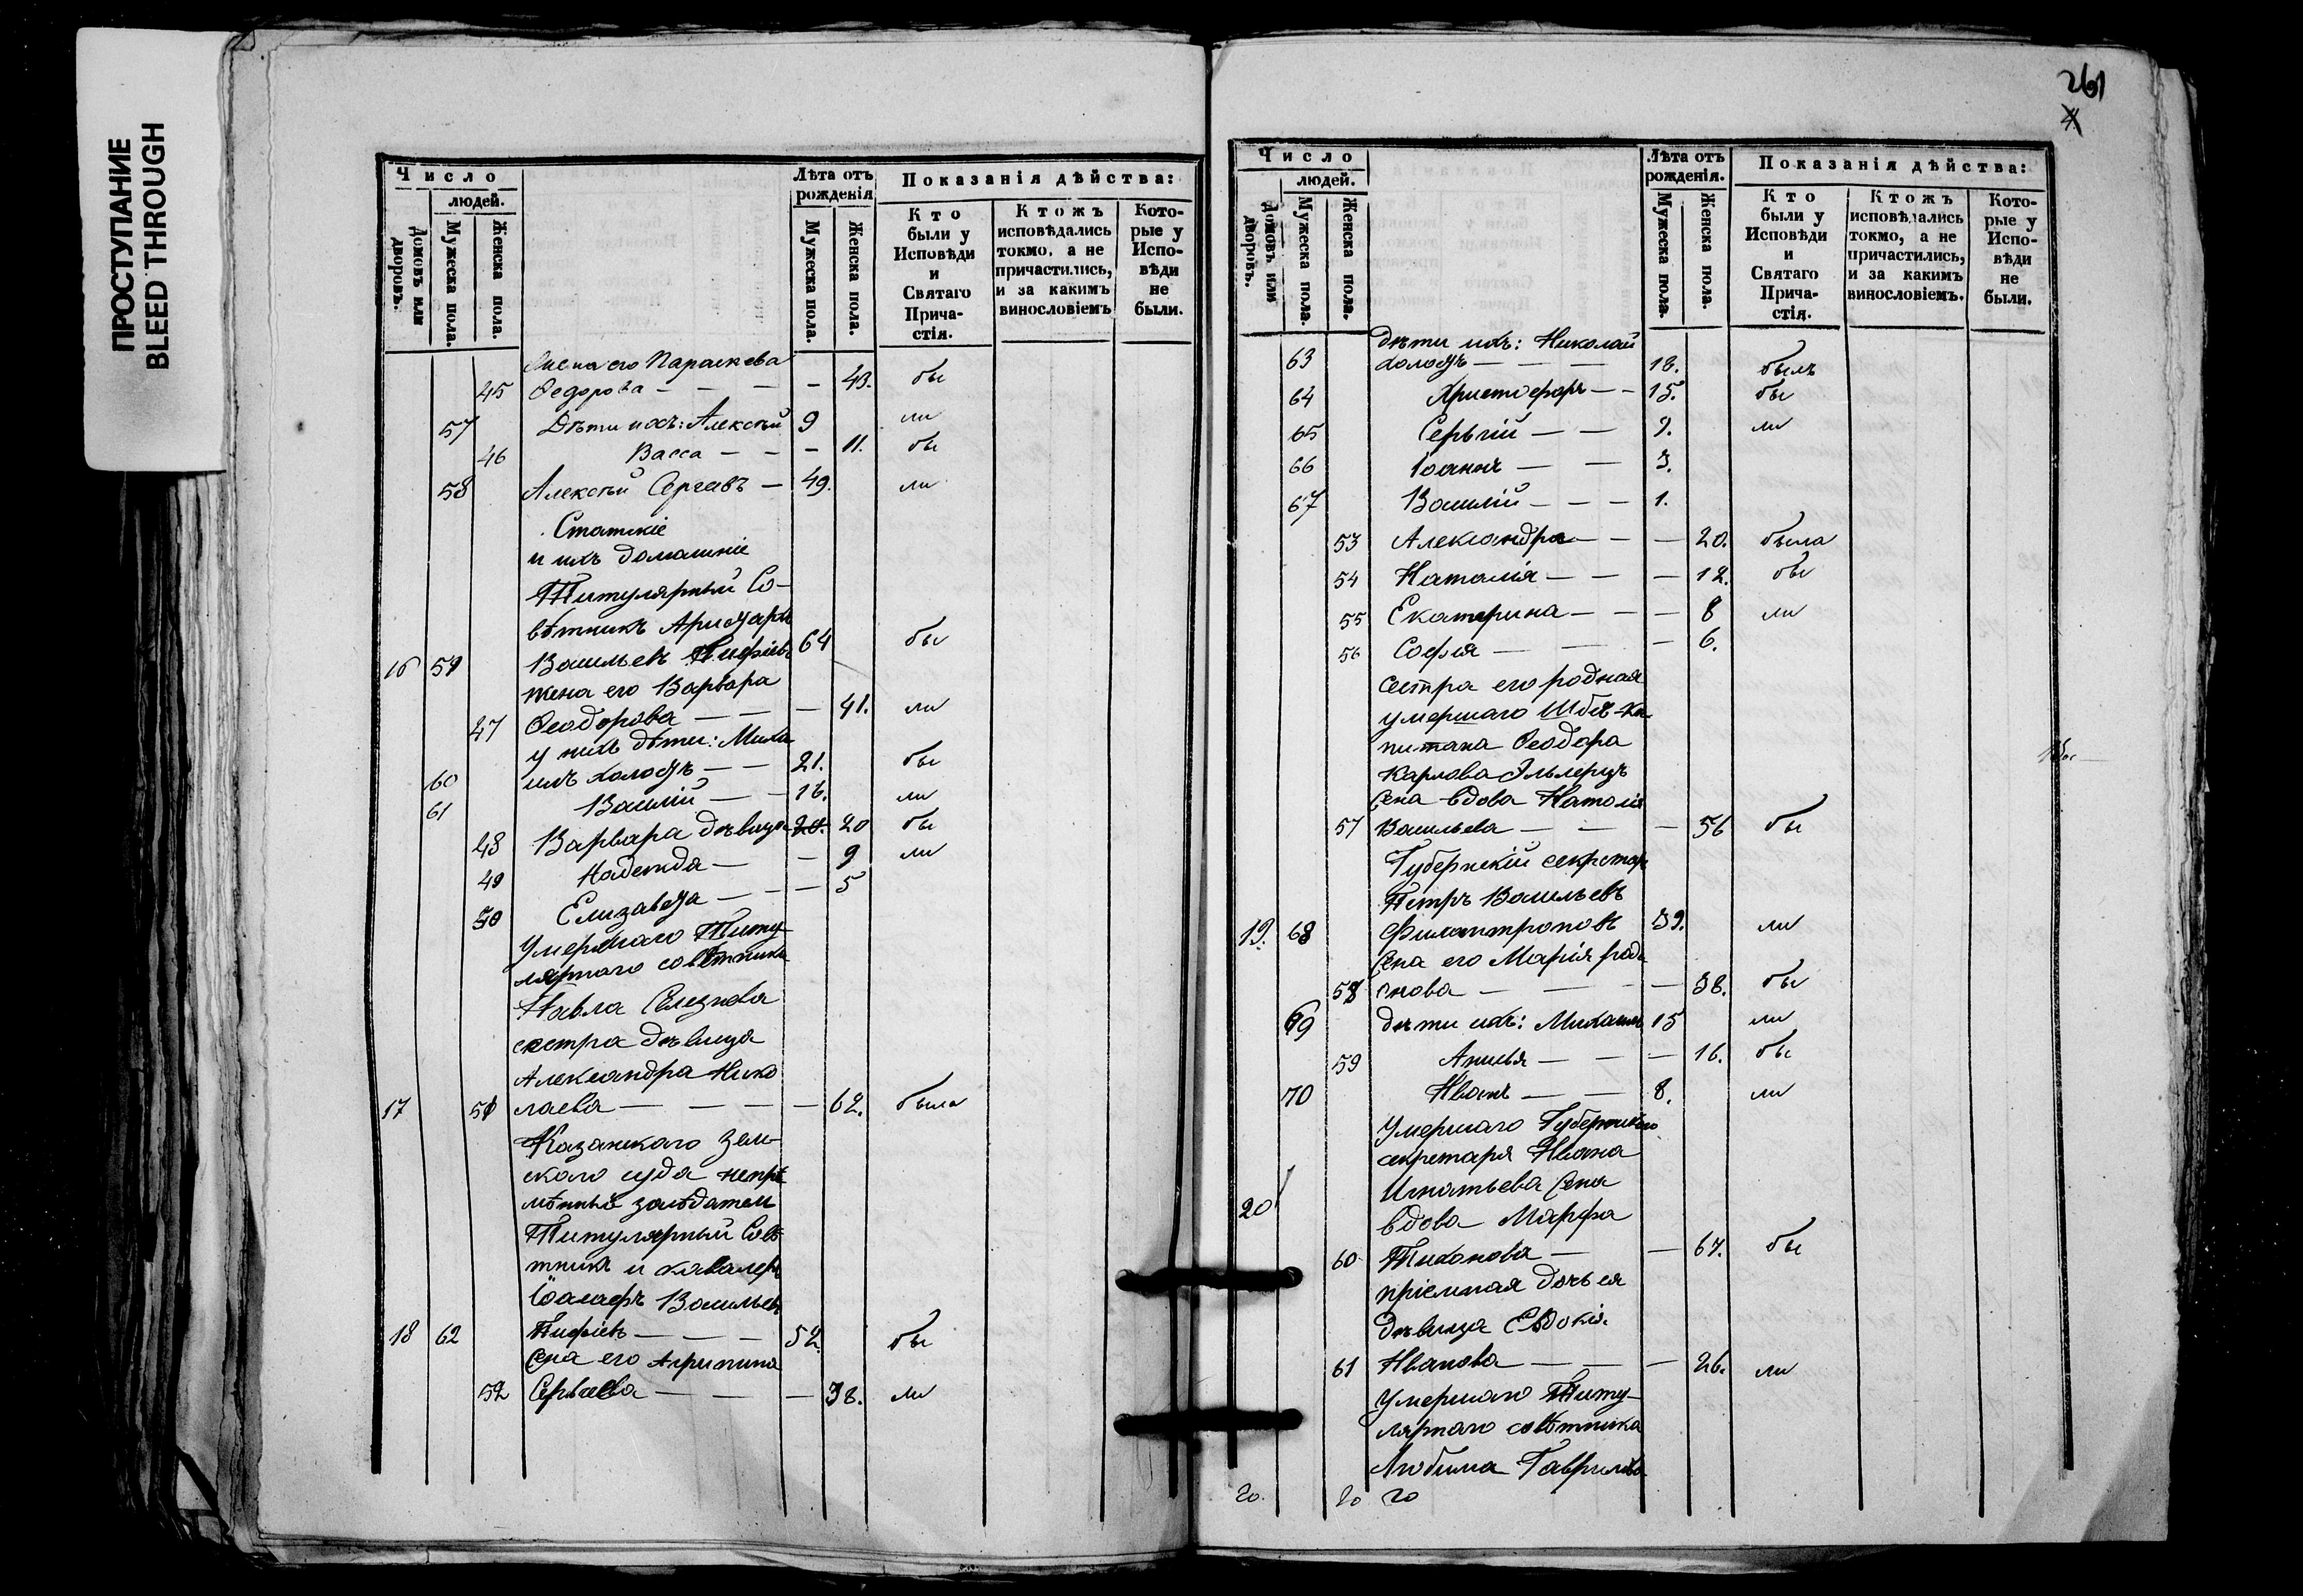 ПРОСТУПАНИЕ
BLEED THROUGH
Число
людей.
Домовъ или дворовъ.
Мужеска пола.
Женска пола.
Лѣта отъ рожденія
Мужеска пола.
Женска пола.
Показанія дѣйства:
Кто были у Исповѣди и Святаго Прича-стія.
Ктожъ исповѣдались токмо, а не причастились, и за какимъ винословіемъ
Кото-рые у Испо-вѣди не были.
Жена его Параскева
45 Ѳедорова — — — — 43. бы
57 Дѣти ихъ: Алексѣй 9 ли
46 Васса — — — 11. бы
58 Алексѣй Сергѣевъ — 49. ли
Статскіе
и ихъ домашніе
Титулярный Со-
вѣтникъ Аристархъ
16 59 Васильевъ 64 бы
жена его Варвара
47 Ѳеодорова — — — 41. ли
у нихъ дѣти: Миха
60 илъ холостъ — — 21. бы
61 Василій — — 16. ли
48 Варвара дѣвица 20. 20 бы
49 Надежда — — 9 ли
50 Елизавета — — — 5
Умершаго Титу-
лярнаго совѣтника
Павла
сестра дѣвица
Александра Нико
17 51 лаева — — — — 62. была
Казанскаго Зем-
скаго суда непре
мѣнный засѣдатель
Титулярный Совѣ-
тникъ и кавалеръ
Іоасафъ Васильевъ
18 62 — — — 52. бы
Жена его Агрипина
52 Сергѣева — — — 38. ли
261
4
Число
людей.
Домовъ или дворовъ.
Мужеска пола.
Женска пола.
Лѣта отъ рожденія.
Мужеска пола.
Женска пола.
Показанія дѣйства:
Кто были у Исповѣди и Святаго Прича-стія.
Ктожъ исповѣдались токмо, а не причастились, и за какимъ винословіемъ.
Кото-рые у Испо-вѣди не были.
дѣти ихъ: Николай
63 холостъ — — — 18. былъ
64 Христофоръ — — 15. бы
65 Сергій — — 9. ли
66 Іоаннъ — — 3.
67 Василій — — — 1.
53 Александра — — — 20. была
54 Наталія — — — 12. бы
55 Екатерина — — — 8 ли
56 Софія — — — 6.
сестра его родная
умершаго Штбсъ-Ка-
питана Ѳеодора
Карлова
Жена вдова Наталія
57 Васильева — — — 56 бы
Губернскій секретарь
Петръ Васильевъ
19. 68 Филантроповъ 39. ли
Жена его Марія
58 — — — 38. бы
69 дѣти ихъ: Михаилъ 15 ли
59 Анисья — — — 16. бы
70 Иванъ — — 8. ли
Умершаго Губернскаго
секретаря Ивана
Игнатьева Жена
20 вдова Марфа
60 Тихонова — — 67. бы
пріемная дочь ея
дѣвица Евдокія
61 Иванова — — — 26. ли
Умершаго Титу-
лярнаго совѣтника
Любима Гаврилова
20. 20 20